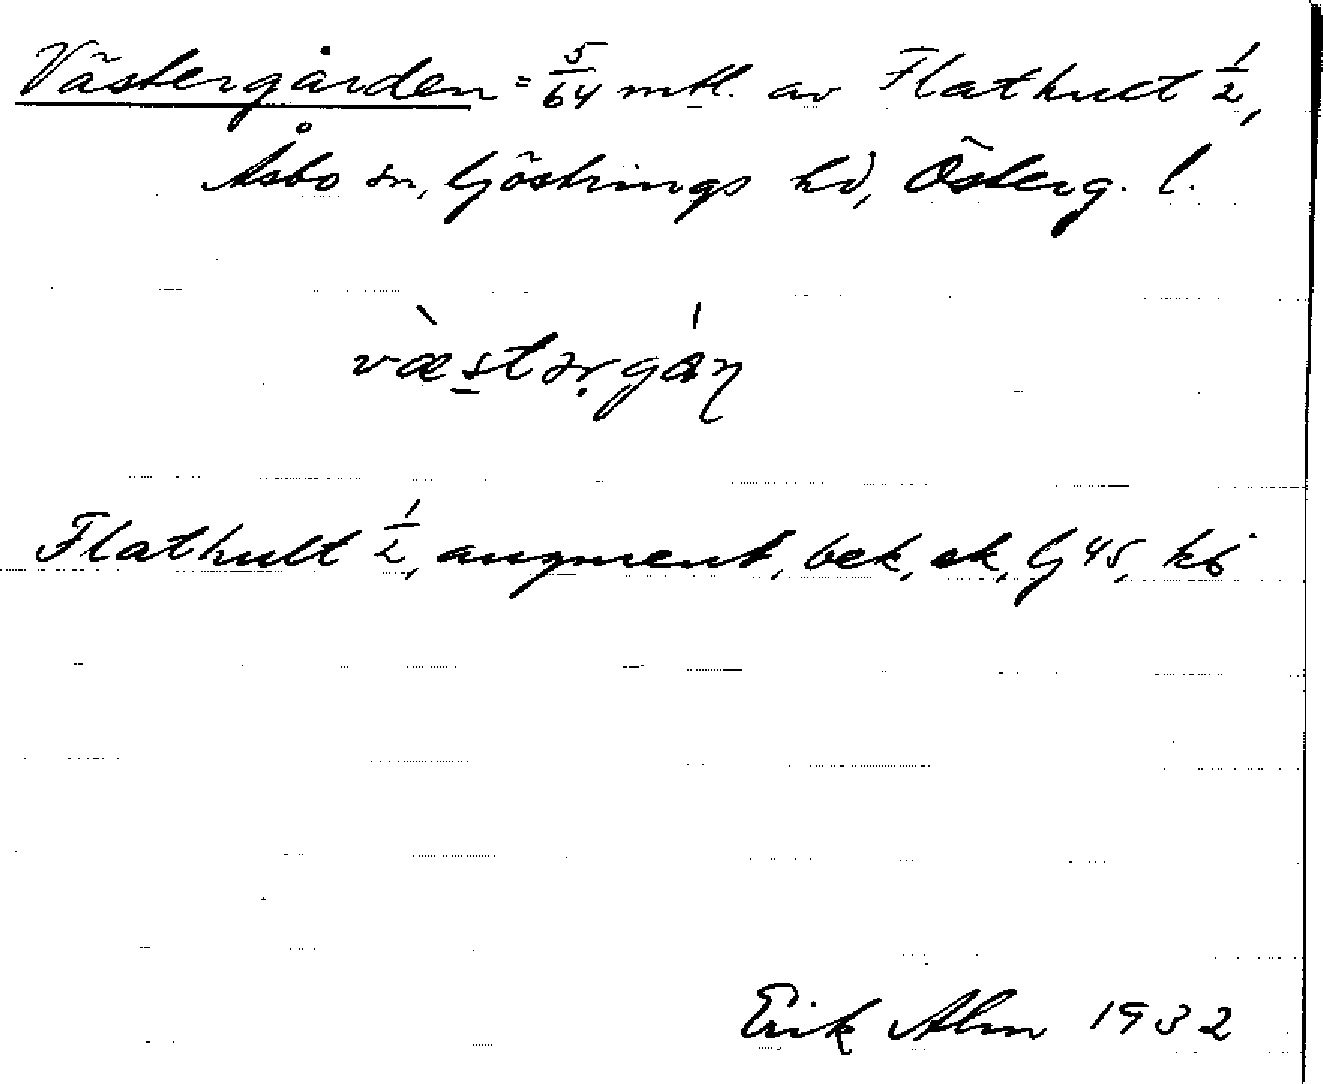 Västergården = 5/64 mtl. av Flathult 1/2,
Åsbo sn, Göstrings hd, Österg. l.
væ̀stərgán
Flathult 1/2, augment, bek, ek, G 45, kb
Erik Alm 1932